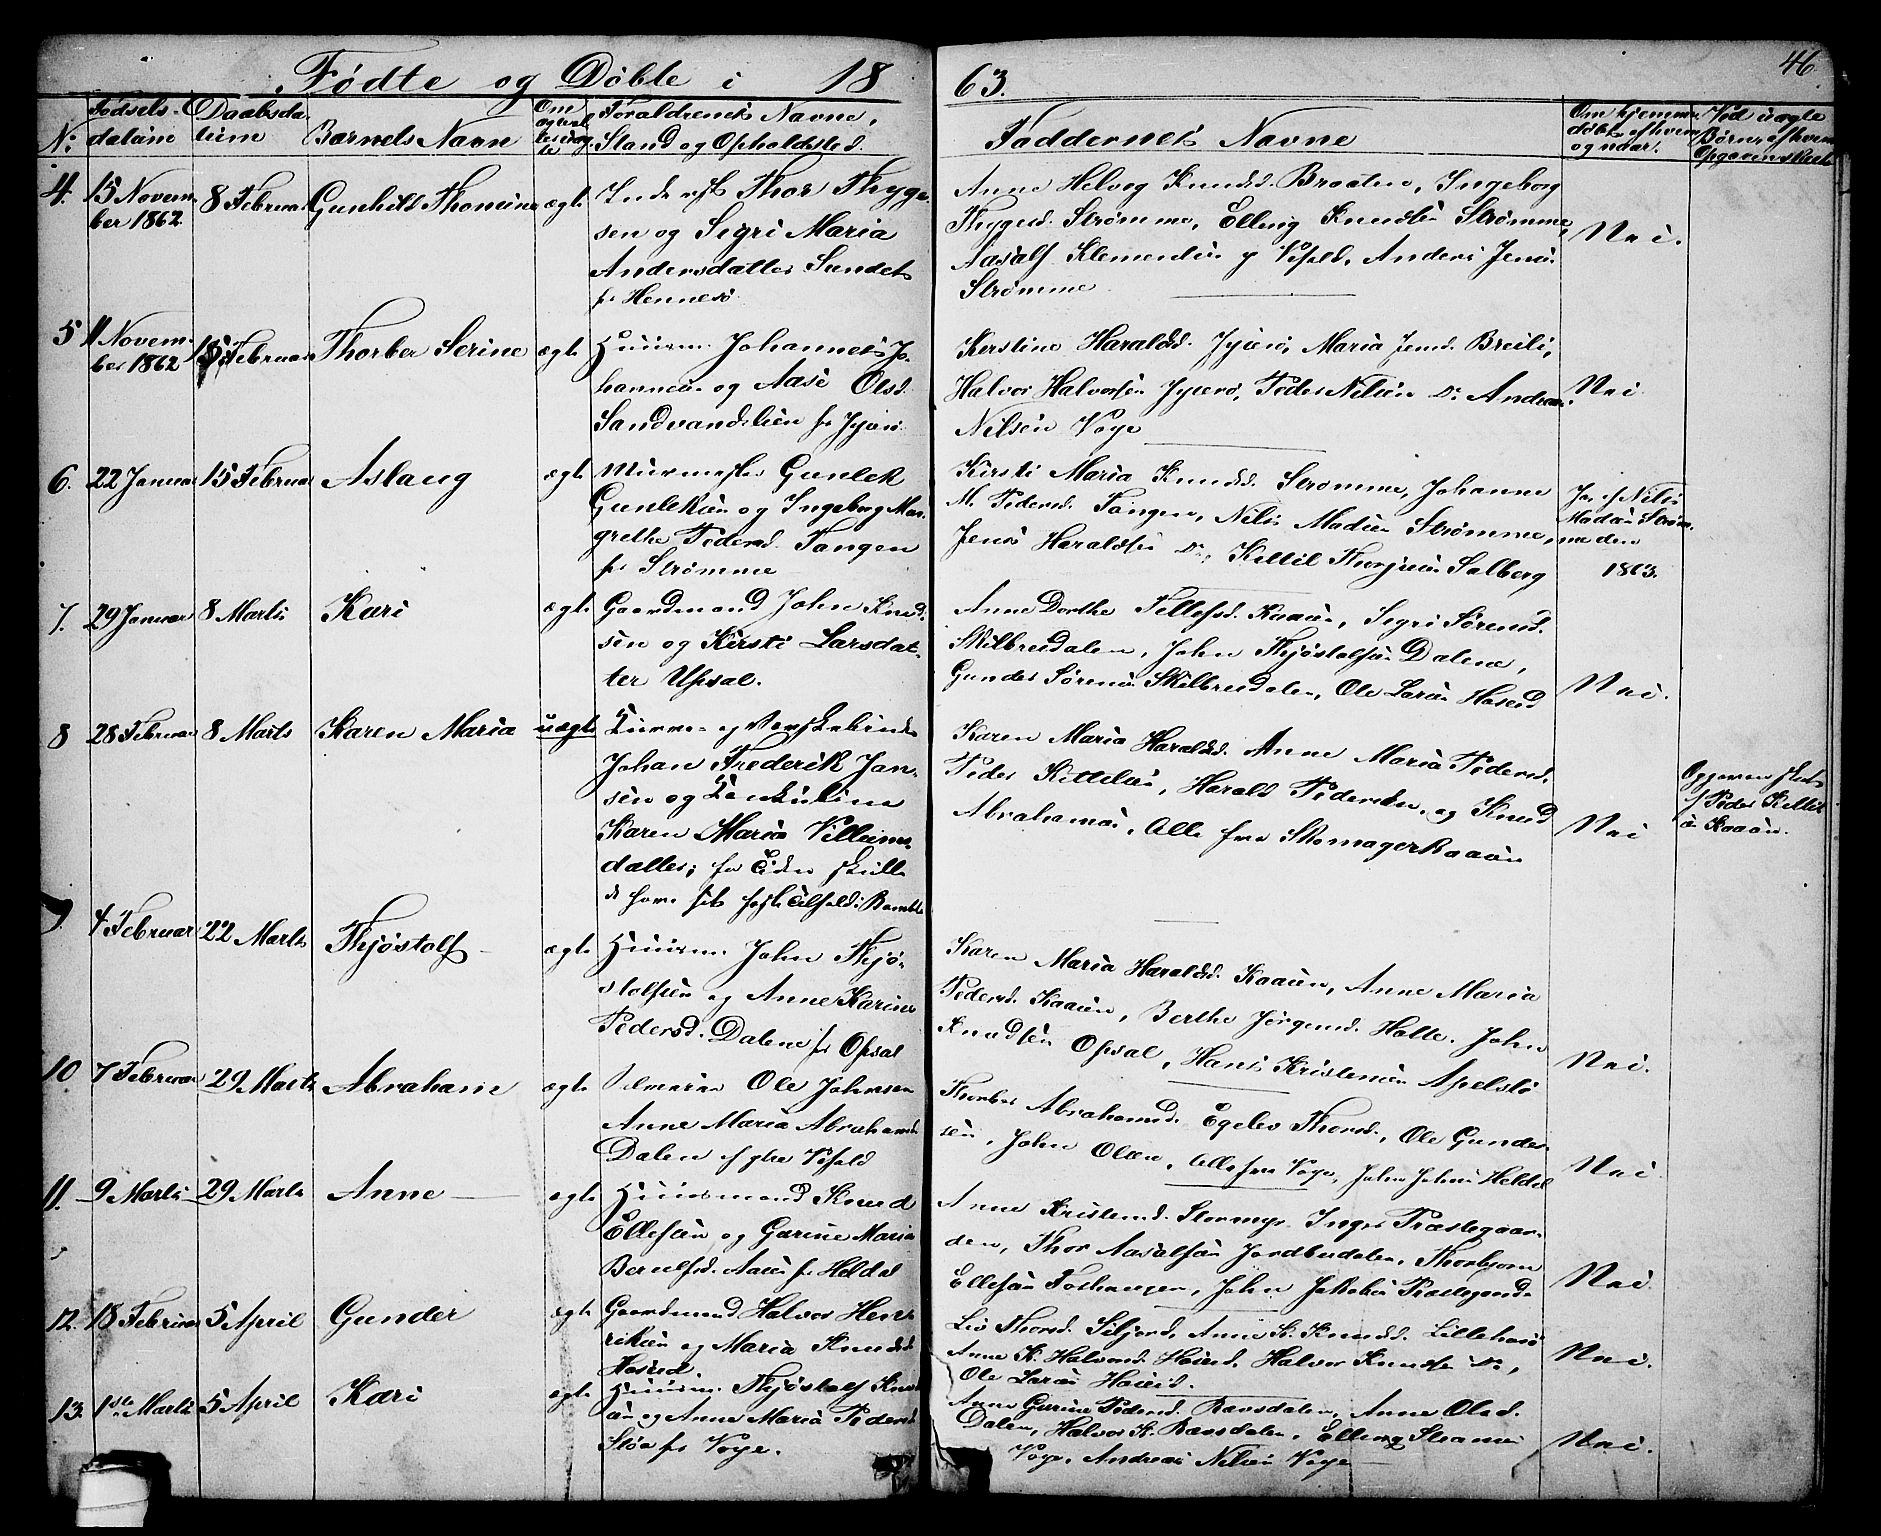 Fødte og Døbte i 18
63.
46
No
Fødsels-
datum
Daabsda-
tum
Barnets Navn
Om
ægte
Foraldrenes Navne,
Stand og Opholdsted.
Faddernes Navne
Om hjemme-
døbt, af hvem
og naar.
Ved uægte
Børn, af hvem
Opgaven
4.
15 Novem-
ber 1862
8 Februar
Gunhild Thomine
ægte
Thor Thyge-
sen og Sigri Maria
Andersdatter Sundet
fr Hennesø
Anne Helvig Knudsd. Braaten, Ingeborg
Thygesd. Strømme, Elling Knudsen Strømme,
Aasalf Klementsen Anders Jensen
Strømme
Nei.
5
11 Novem-
ber 1862
15 Februar
Thorber Serine
ægte
Huusm. Johannes Jo-
hannesen og Aase Olsd.
Sandvandslien fr
Kerstine Haraldsd. Maria Jensd. Breili,
Halvor Halvorsen Peder Nilsen Do Andreas
Nilsen Voje
Nei
6.
22 Januar
15 Februar
Aslaug
ægte
Murmester Gunlek
Gunleksen og Ingeborg Mar-
grethe Pedersd. Tangen
fr Strømme
Kirsti Maria Knudsd. Strømme, Johanne
M. Pedersd. Tangen, Nils Madsen Strømme,
Jens Haraldsen Do, Kittil Thorjusen Solberg
Ja, af Nils
Madsen Strøm-
me den
1863.
7.
29 Januar
8 Marts
Kari
ægte
Gaardmand John Knud-
sen og Kirsti Larsdat-
ter Upsal.
Anne Dorthe Tellefsd. Kaasen, Sigri Sørensd.
Skilbreidalen, John Thjøstolfsen Dalene,
Gunder Sørensen Skilbreidalen, Ole Larsen Haseid
Nei.
8
28 Februar
8 Marts
Karen Maria
uægte
Johan Frederik Jan-
sen og
Karen Maria Villums-
datter,
Bamble
Karen Maria Haraldsd. Anne Maria Pedersd.
Peder Kittilsen, Harald Pedersen, og Knud
Abrahamsen, Alle fra Skomagerkaasen
Nei
Opgaven
f Peder Kittil-
sen Kaasen.
9.
4 Februar
22 Marts
Thjøstolf
ægte
Huusm. John Thjø-
stolfsen og Anne Karine
Pedersd. Dalene fr Opsal
Karen Maria Haraldsd. Kaasen, Anne Maria
Pedersd. Kaasen, Berthe Jørgensd. Holte, John
Knudsen Opsal, Hans Kristensen Apelstø
Nei.
10
7 Februar
29 Marts
Abraham
ægte
Ole Johnsen
Anne Maria Abrahamsd.
Dalen
Thorber Abrahamsd. Egelev Thorsd., Ole Gunder-
sen, John Olsen, Alle fra Voje, John Johnsen Heldal
Nei.
11.
9 Marts
29 Marts
Anne
ægte
Huusmand Knud
Ellefsen og Gurine Maria
Berulfsd. Aasen fr Heldal
Anne Kristensd. Stormyr Inger Præstegaar-
den, Thor Aasalfsen Jordbudalen, Thorbjørn
Ellefsen John Jakobsen
Nei.
12.
18 Februar
5 April
Gunder
ægte
Gaardmand Halvor Hen-
riksen og Maria Knudsd.
Haseid.
Liv Thorsd. Siljord, Anne K. Knudsd. Lillehaseid
Anne K. Halvorsd. Haseid, Halvor Knudsen Do,
Ole Larsen Haseid.
Nei.
13.
1ste Marts
5 April
Kari
ægte
Huusm. Thjøstolf Knud-
sen og Anne Maria Pedersd.
Støa fr Voje.
Anne Gurine Pedersd. Ravsdalen, Anne Olsd.
Dalen, Halvor K. Ravsdalen, Elling
Voje, Andreas Nilsen Voje
Nei.